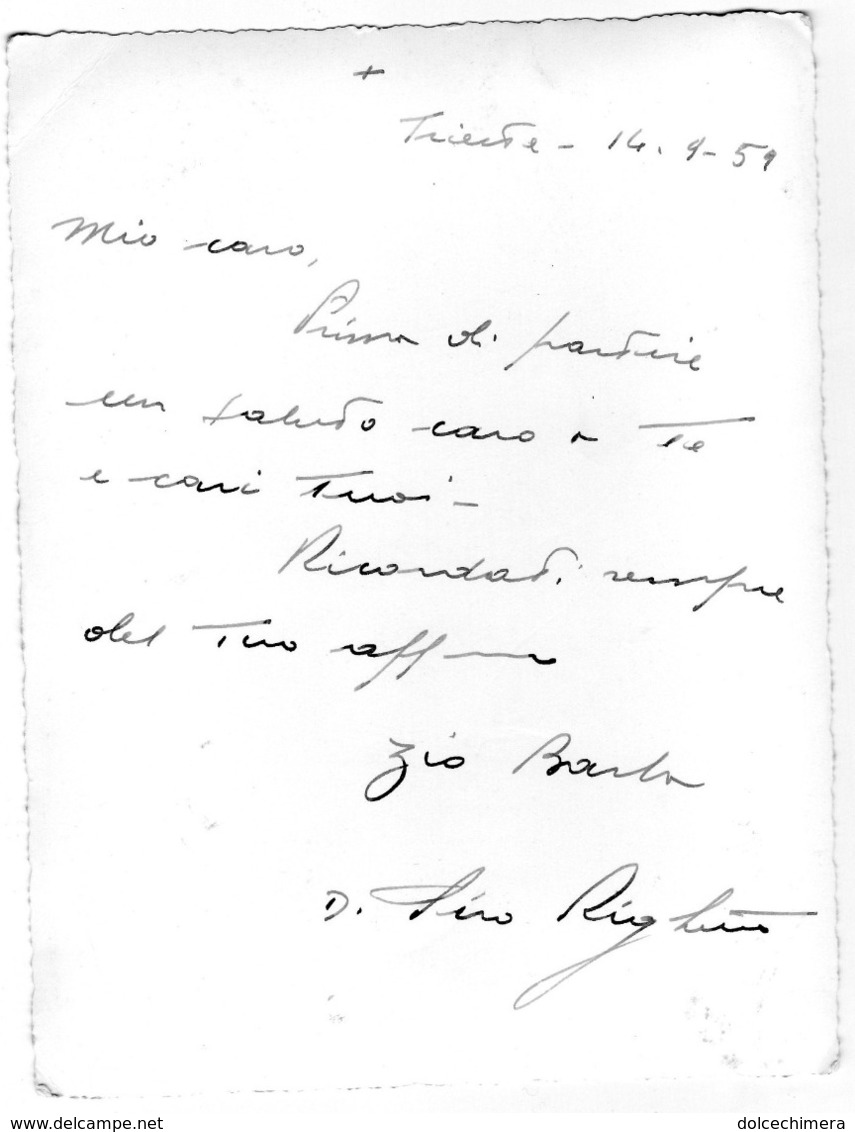 +
Trieste - 14. 9 - 59
Mio caro,
Prima di partire
un saluto caro a Te
e cari Tuoi -
Ricordati sempre
del Tuo aff mo
Zio Barba
D. Piro
www.delcampe.net
dolcechimera